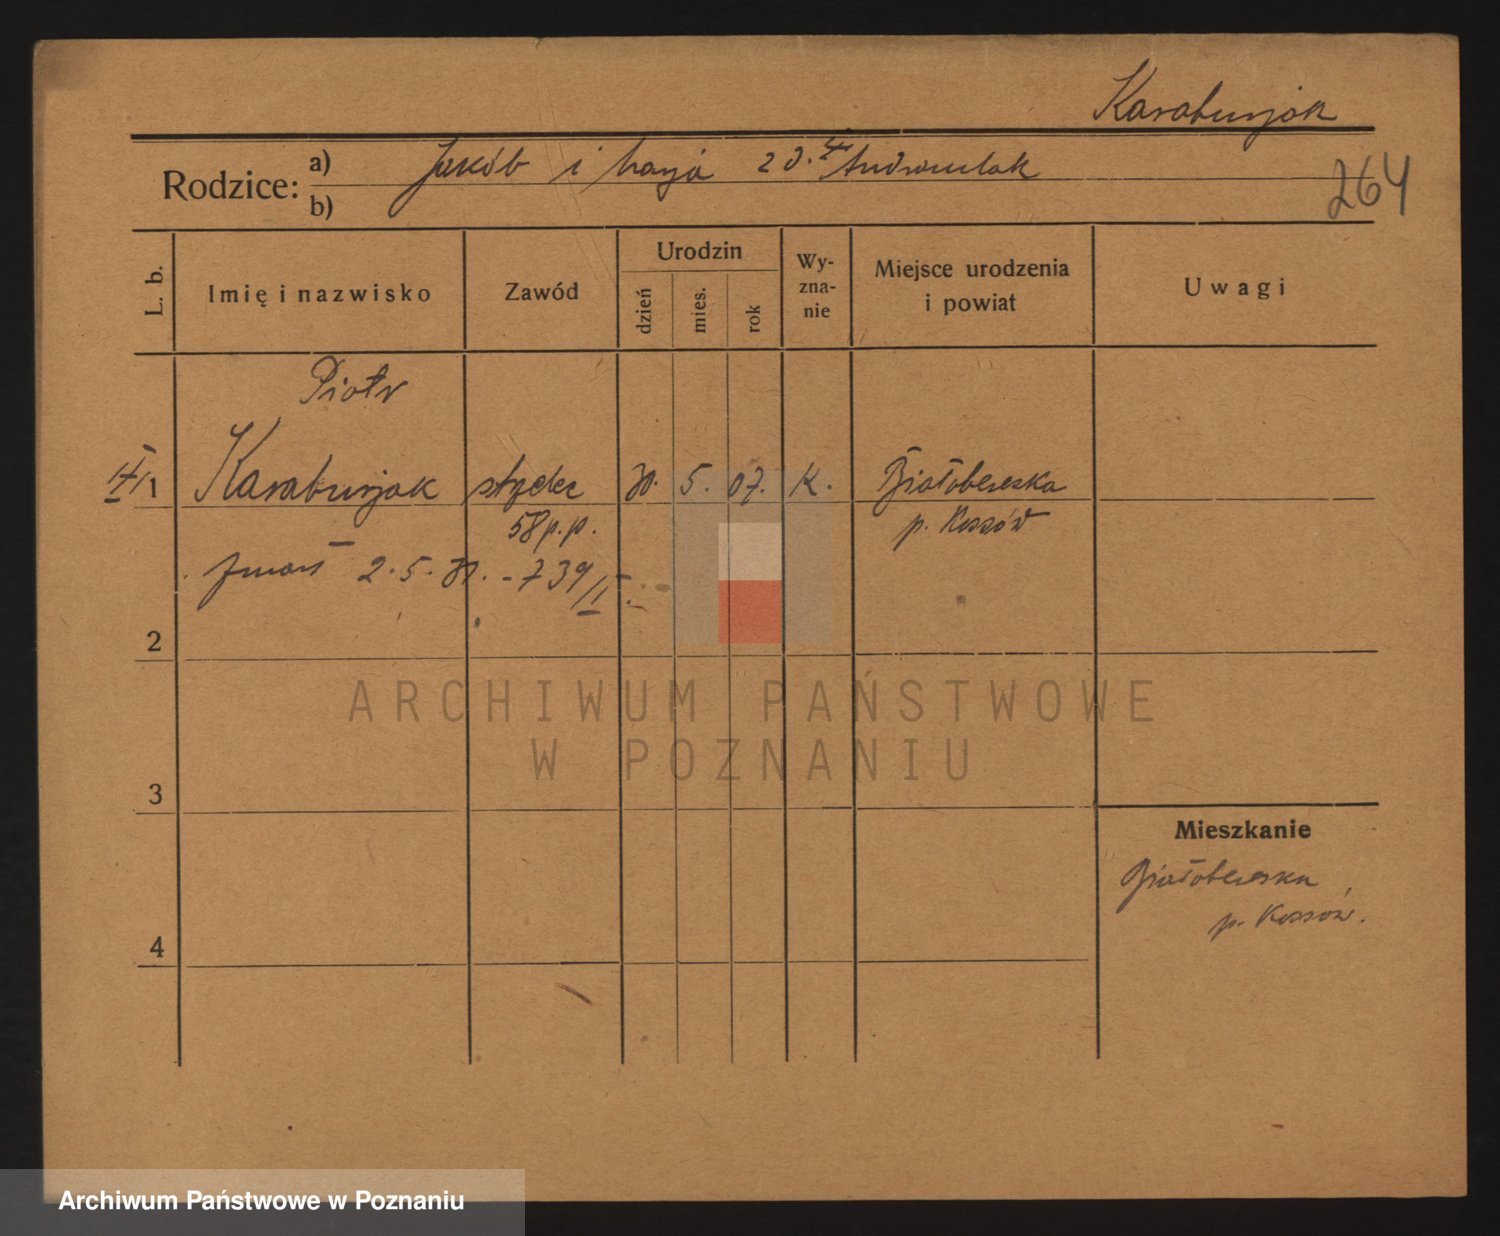 Karaburjak
Rodzice: a) Jakób i Marja z d. Andrczulak
b)
264
L. b.
Imię i nazwisko
Zawód
Urodzin
dzień
mies.
rok
Wy-
zna-
nie
Miejsce urodzenia
i powiat
Uwagi
Piotr
1 Karaburjak strzelec 30. 5. 07. K. Białobereska
58 p.p. p. Kossów
zmarł 2.5.31. - 739/II
2
ARCHIWUM PAŃSTWOWE
W POZNANIU
3
Mieszkanie
Białobereska
p. Kossów.
4
Archiwum Państwowe w Poznaniu